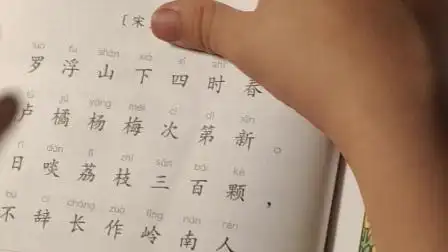 [宋
luó fú shān xià sì shí
罗浮山下四时春
jú yáng méi cì dì xīn
卢橘杨梅次第新。
rì dàn lì zhī sān bǎi kē
日啖荔枝三百颗，
bù cí cháng zuò lǐng nán rén
不辞长作岭南人